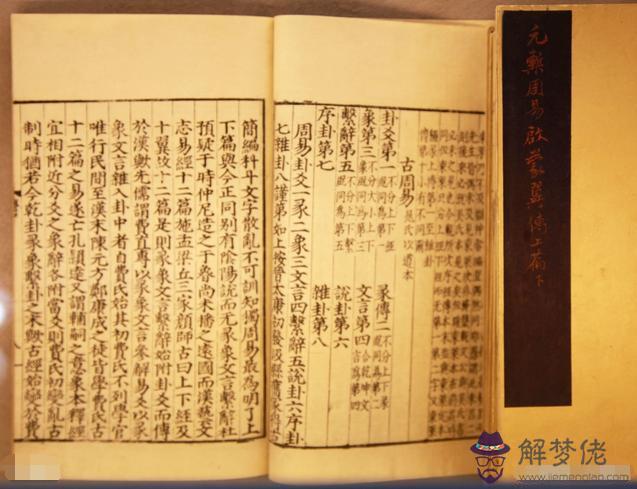 元槧周易啟蒙翼傳上篇下
古周易 晁氏以道本
卦爻第一 不分上下經 彖傳二
象第三 不分大小上下 文言第四 合乾坤文
繫辭第五 不分上下繫 說卦第六
序卦第七 雜卦第八
周易卦爻一彖二象三文言四繫辭五說卦六序卦
七雜卦八謹第如上按晉太康初發汲縣舊冢得古
簡編科斗文字散亂不可訓知獨周易最為明了上
下篇與今正同別有陰陽說而无彖象文言繫辭杜
預疑于時仲尼造之于魯尚未播之遠國而漢藝文
志易經十二篇施孟梁丘三家顏師古曰上下經及
十翼故十二篇是則彖象文言繫辭始附卦爻而傳
於漢歟先儒謂費直專以彖象文言參解易爻以彖
象文言雜入卦中者自費氏始其初費氏不列學官
唯行民間至漢末陳元方鄭康成之徒皆學費氏古
十二篇之易遂亡孔穎達又謂輔嗣之意象本釋經
宜相附近分爻之象辭各附當爻則費氏初變亂古
制時猶若今乾卦彖象繫卦之末歟古經始變於費
解梦佬